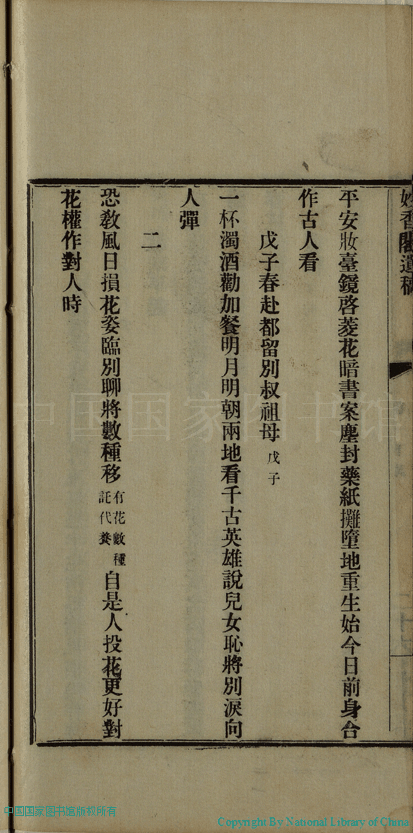 妙香閣遺稿
平安妝臺鏡啓菱花暗書案塵封藥紙攤墮地重生始今日前身合
作古人看
戊子春赴都留別叔祖母戊子
一杯濁酒勸加餐明月明朝兩地看千古英雄說兒女恥將別淚向
人彈
二
恐教風日損花姿臨別聊將數種移有花數種託代養自是人投花更好對
花權作對人時
中国国家图书馆
中国国家图书馆版权所有
Copyright By National Library of China